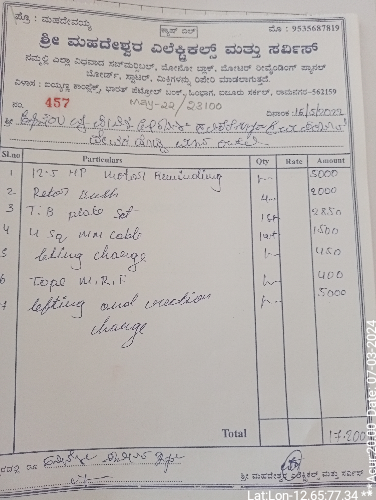 ಪ್ರೊ : ಮಹದೇವಯ್ಯ
ಕ್ಯಾಷ್ ಬಿಲ್
ಮೊ : 9535687819
ಶ್ರೀ ಮಹದೇಶ್ವರ ಎಲೆಕ್ಟ್ರಿಕಲ್ಸ್ ಮತ್ತು ಸರ್ವಿಸ್
ನಮ್ಮಲ್ಲಿ ಎಲ್ಲಾ ವಿಧವಾದ ಸಬ್‌ಮರ್ಸಿಬಲ್, ಮೋನೋ ಬ್ಲಾಕ್, ಮೋಟರ್ ರೀವೈಂಡಿಂಗ್ ಪ್ಯಾನಲ್
ಬೋರ್ಡ್, ಸ್ಟಾರ್ಟರ್, ಮಿಕ್ಸಿಗಳನ್ನು ರಿಪೇರಿ ಮಾಡಲಾಗುತ್ತದೆ.
ವಿಳಾಸ : ಕಾಂಪ್ಲೆಕ್ಸ್, ಭಾರತ್ ಪೆಟ್ರೋಲ್ ಬಂಕ್, ಹಿಂಭಾಗ, ಐಜೂರು ಸರ್ಕಲ್, ರಾಮನಗರ-562159
NO. 457
MAY-22/23100
ದಿನಾಂಕ : 16/5/2022
ಶ್ರೀ
Sl.no Particulars Qty Rate Amount
1 12.5 HP Motor Rewinding 1- 5000
2 Bush 4- 2000
3 T.B plate set 1set 2850
4 4 Sq MM Cable 1500
5 charge 1- 450
6 Tape M.R.F 400
7 lefting and erection 1- 5000
charge
Total 17.200
ಶ್ರೀ ಮಹದೇಶ್ವರ ಎಲೆಕ್ಟ್ರಿಕಲ್ಸ್ ಮತ್ತು ಸರ್ವಿಸ್
Lat:Lon-12.65:77.34 ** Acur 20.00 Date: 07-03-2023